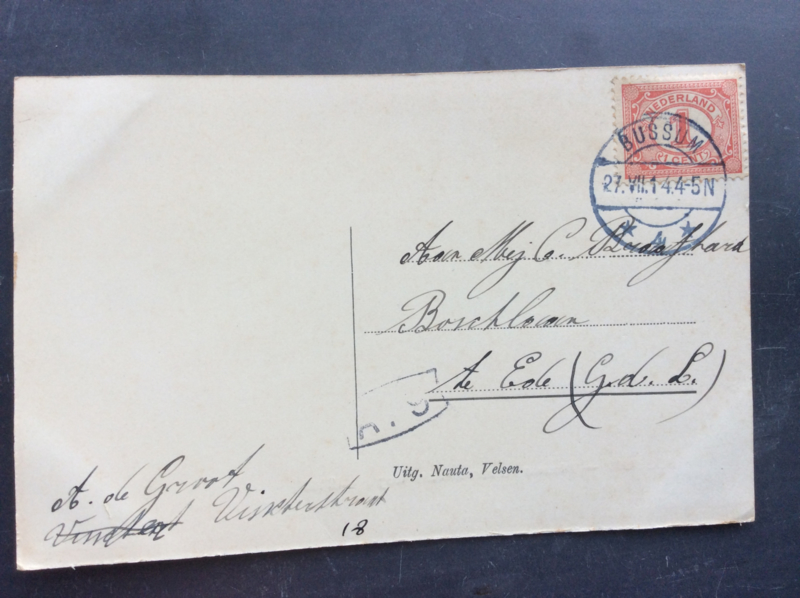 NEDERLAND
1
CENT
BUSSUM
27.VII.14.4-5N
* 4 *
Aan Mej C.
Boschlaan
te Ede (G.d. L.)
Uitg. Nauta, Velsen.
A. de Groot
18